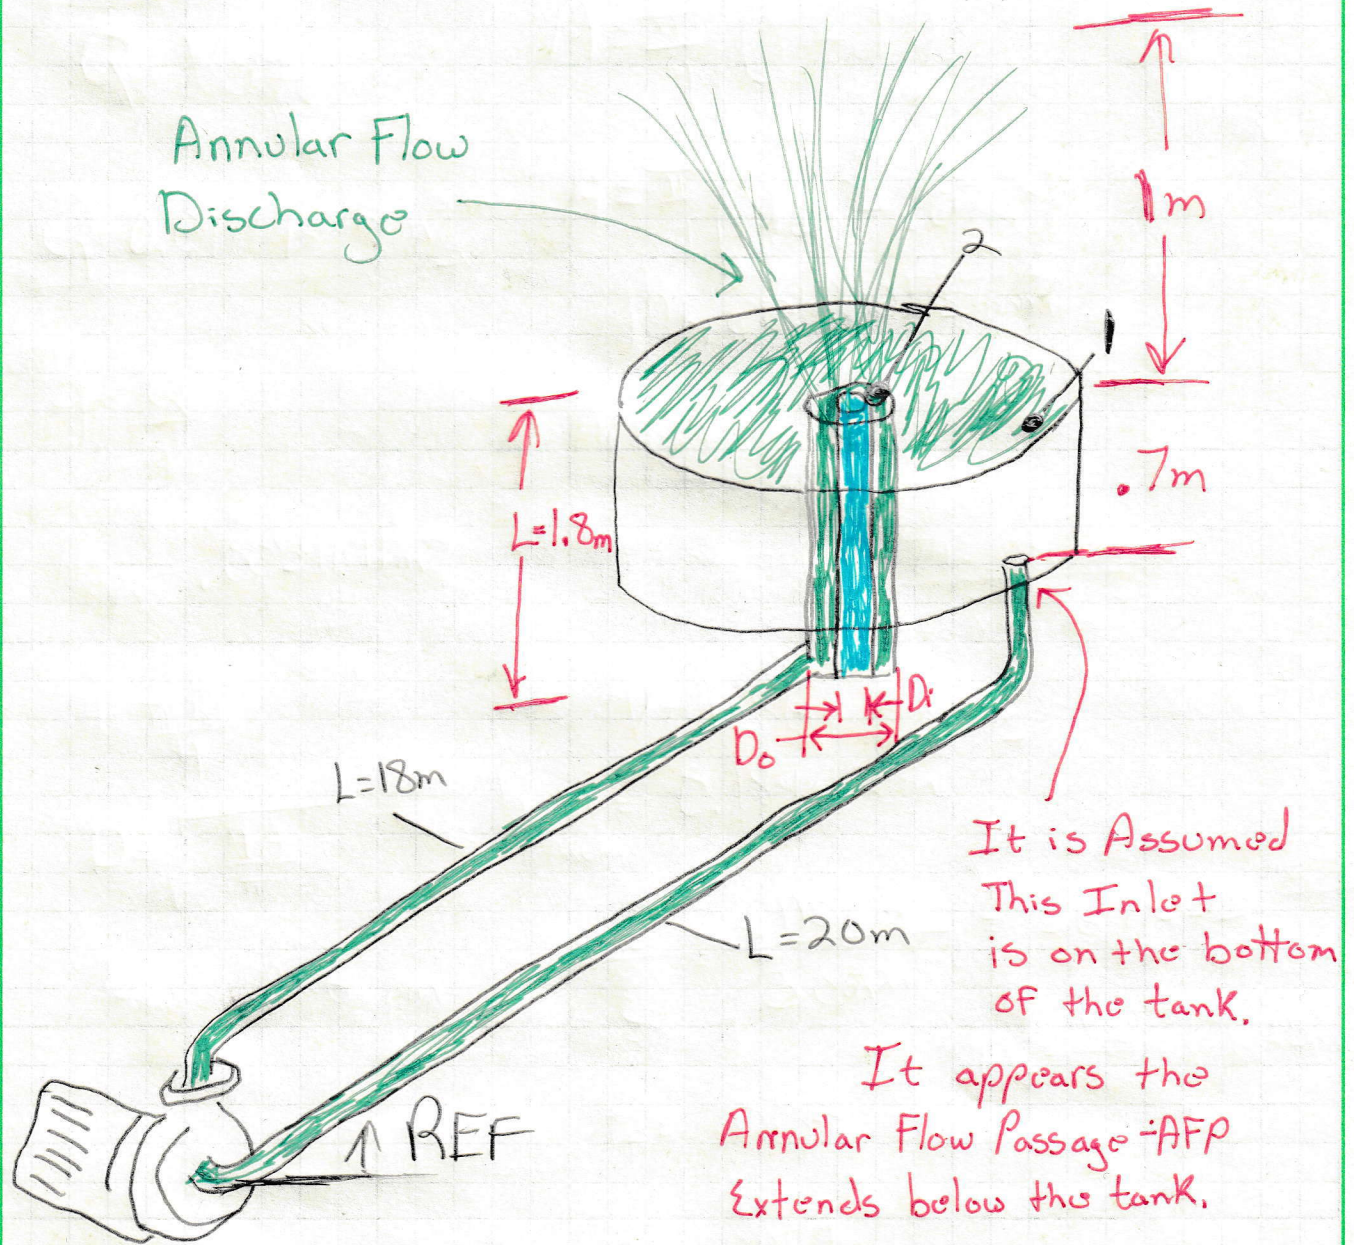 Annular Flow
Discharge
1m
2
1
.7m
L=1.8m
Di
Do
L=18m
L=20m
It is Assumed
This Inlet
is on the bottom
of the tank.
It appears the
Annular Flow Passage-AFP
Extends below the tank.
REF